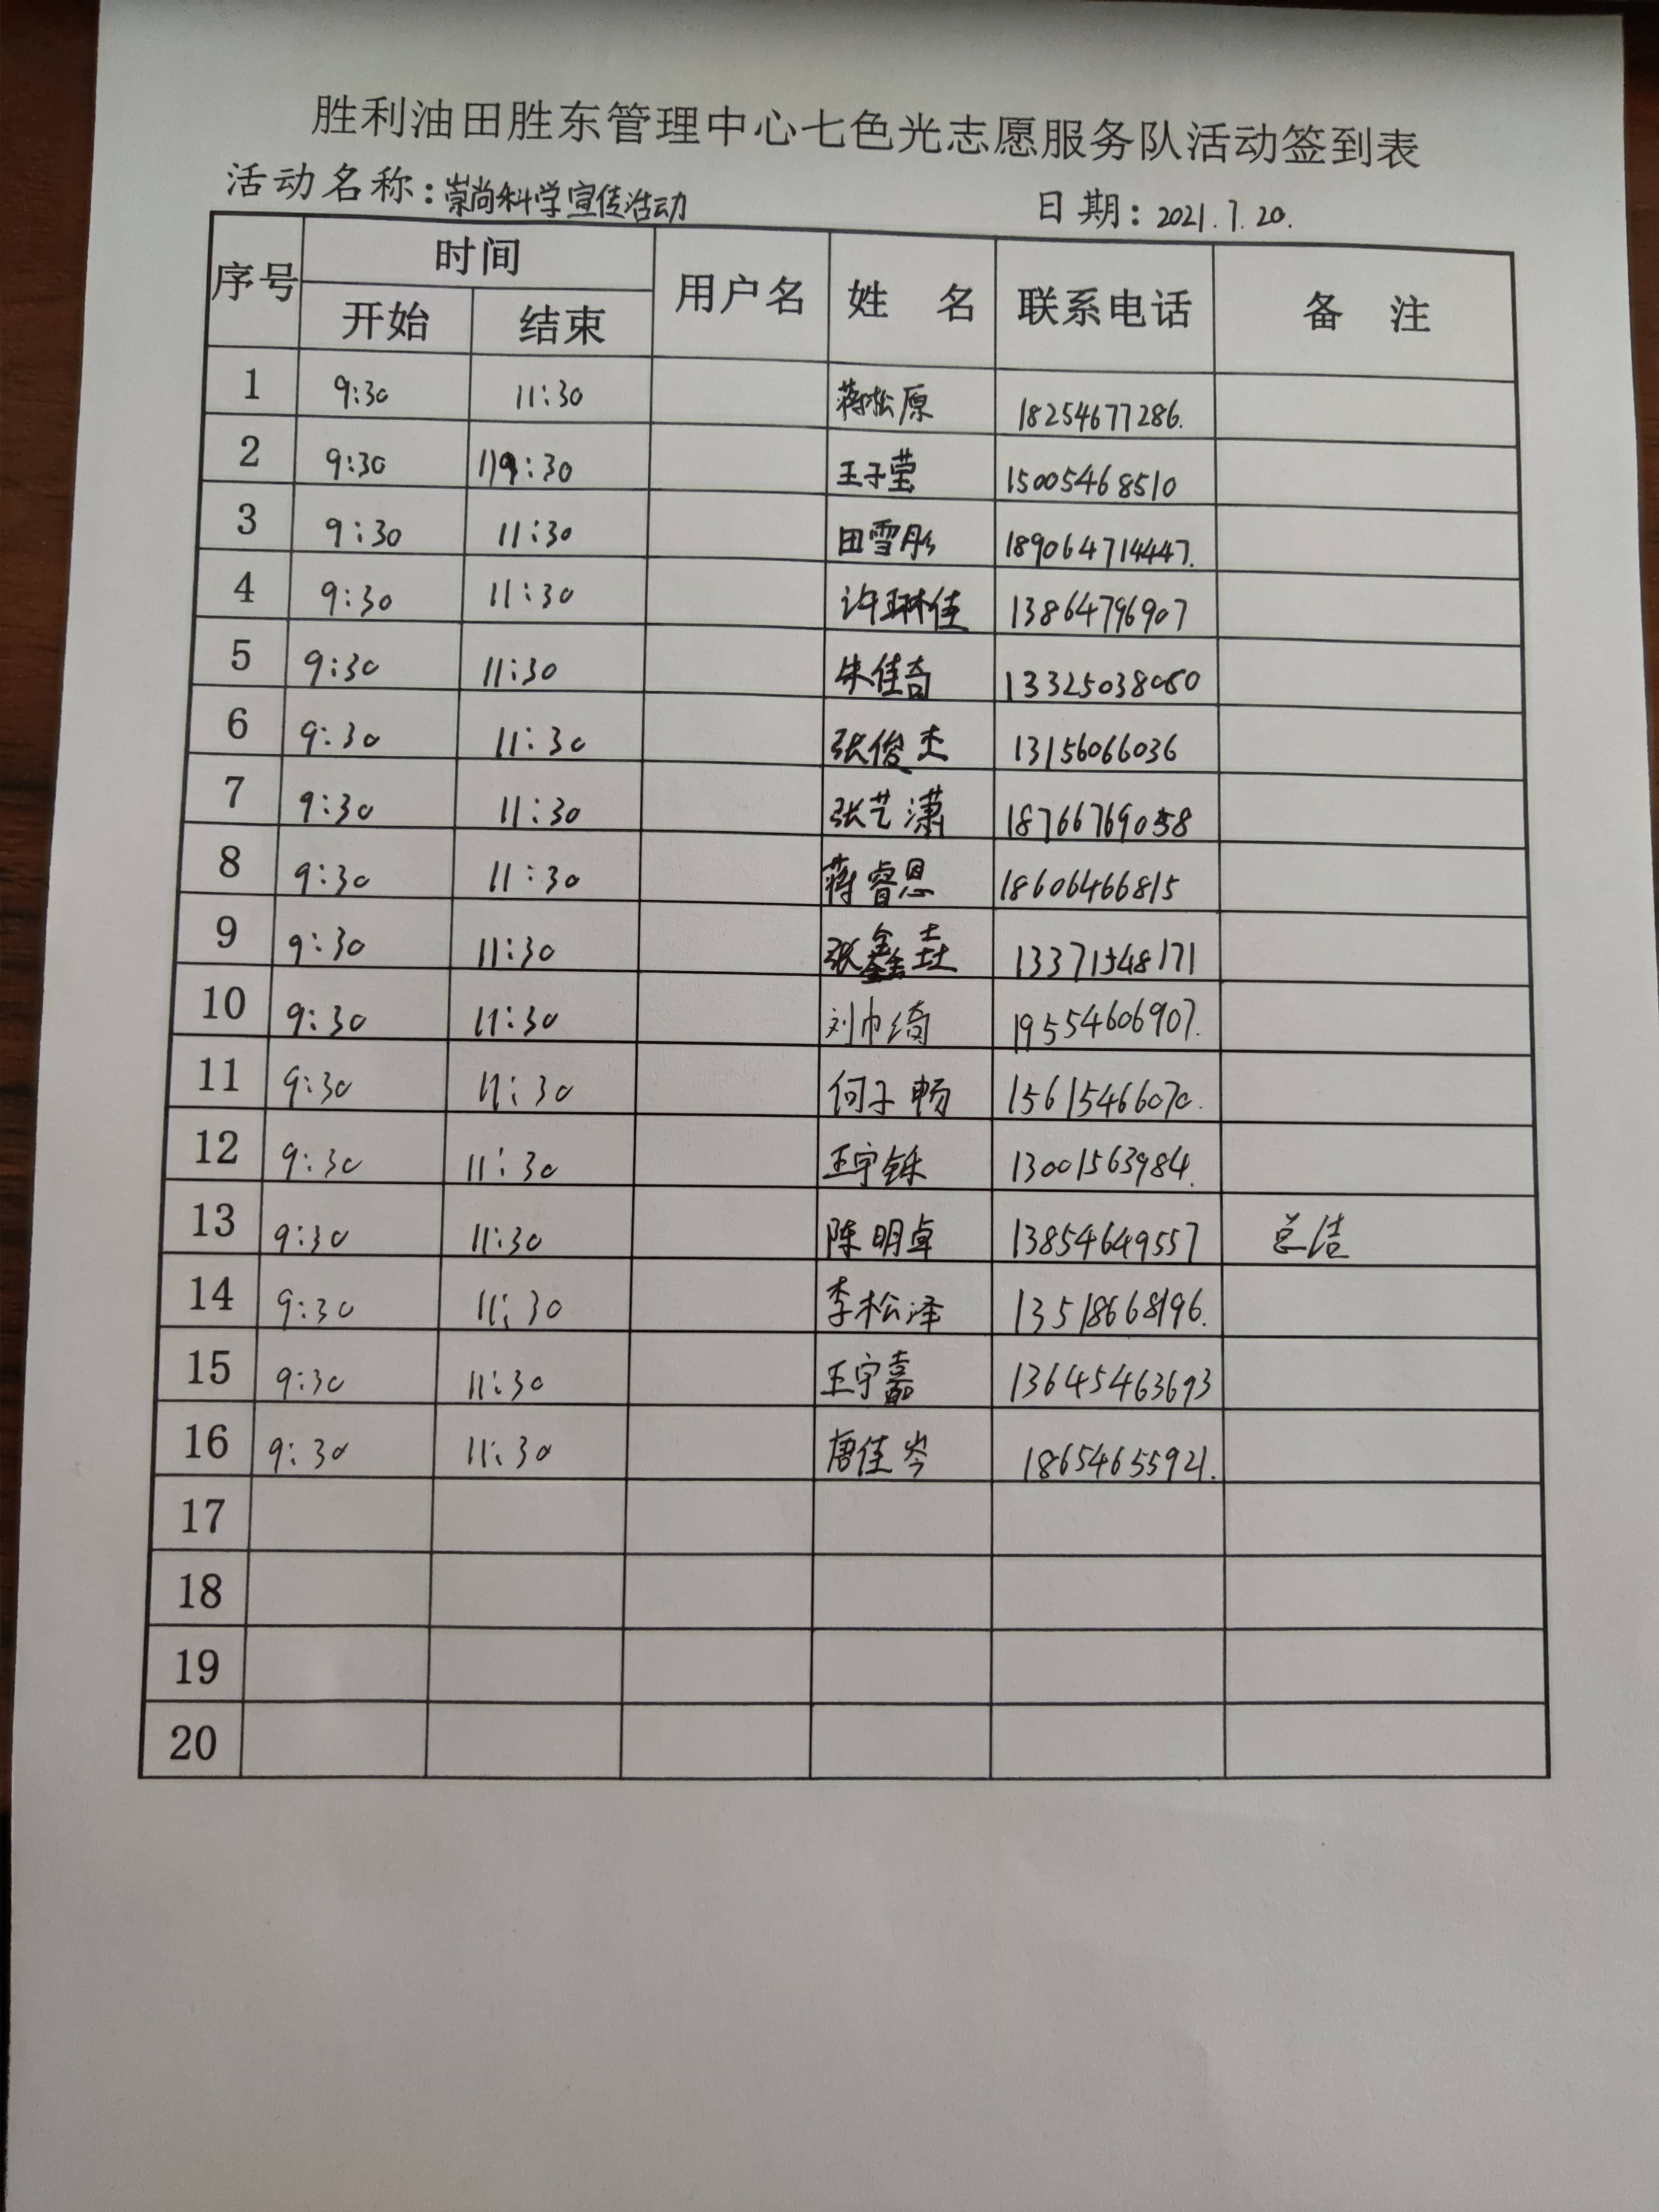 胜利油田胜东管理中心七色光志愿服务队活动签到表
活动名称：崇尚科学宣传活动 日期：2021.7.20.
序号 时间 用户名 姓 名 联系电话 备 注
开始 结束
1 9:30 11:30 蒋松原 18254677286.
2 9:30 :30 王子莹 15005468510
3 9:30 11:30 田雪彤 189064714447.
4 9:30 11:30 许琳佳 13864796907
5 9:30 11:30 朱佳奇 13325038080
6 9:30 11:30 张俊杰 13156066036
7 9:30 11:30 张艺潇 18766769058
8 9:30 11:30 蒋睿恩 18606466815
9 9:30 11:30 张鑫垚 13371548171
10 9:30 11:30 刘巾绮 19554606907.
11 9:30 11:30 何子畅 15615466070.
12 9:30 11:30 王宇铄 13001563984.
13 9:30 11:30 陈明卓 13854649557 总结
14 9:30 11:30 李松泽 13518668196.
15 9:30 11:30 王宇嘉 13645463693
16 9:30 11:30 唐佳岑 18654655921.
17
18
19
20